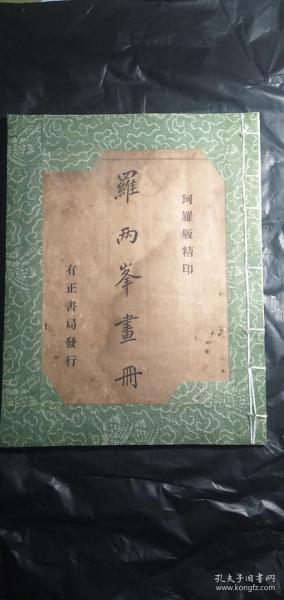 珂羅版精印
羅两峯畫冊
有正書局發行
孔夫子旧书网
kongfz.com